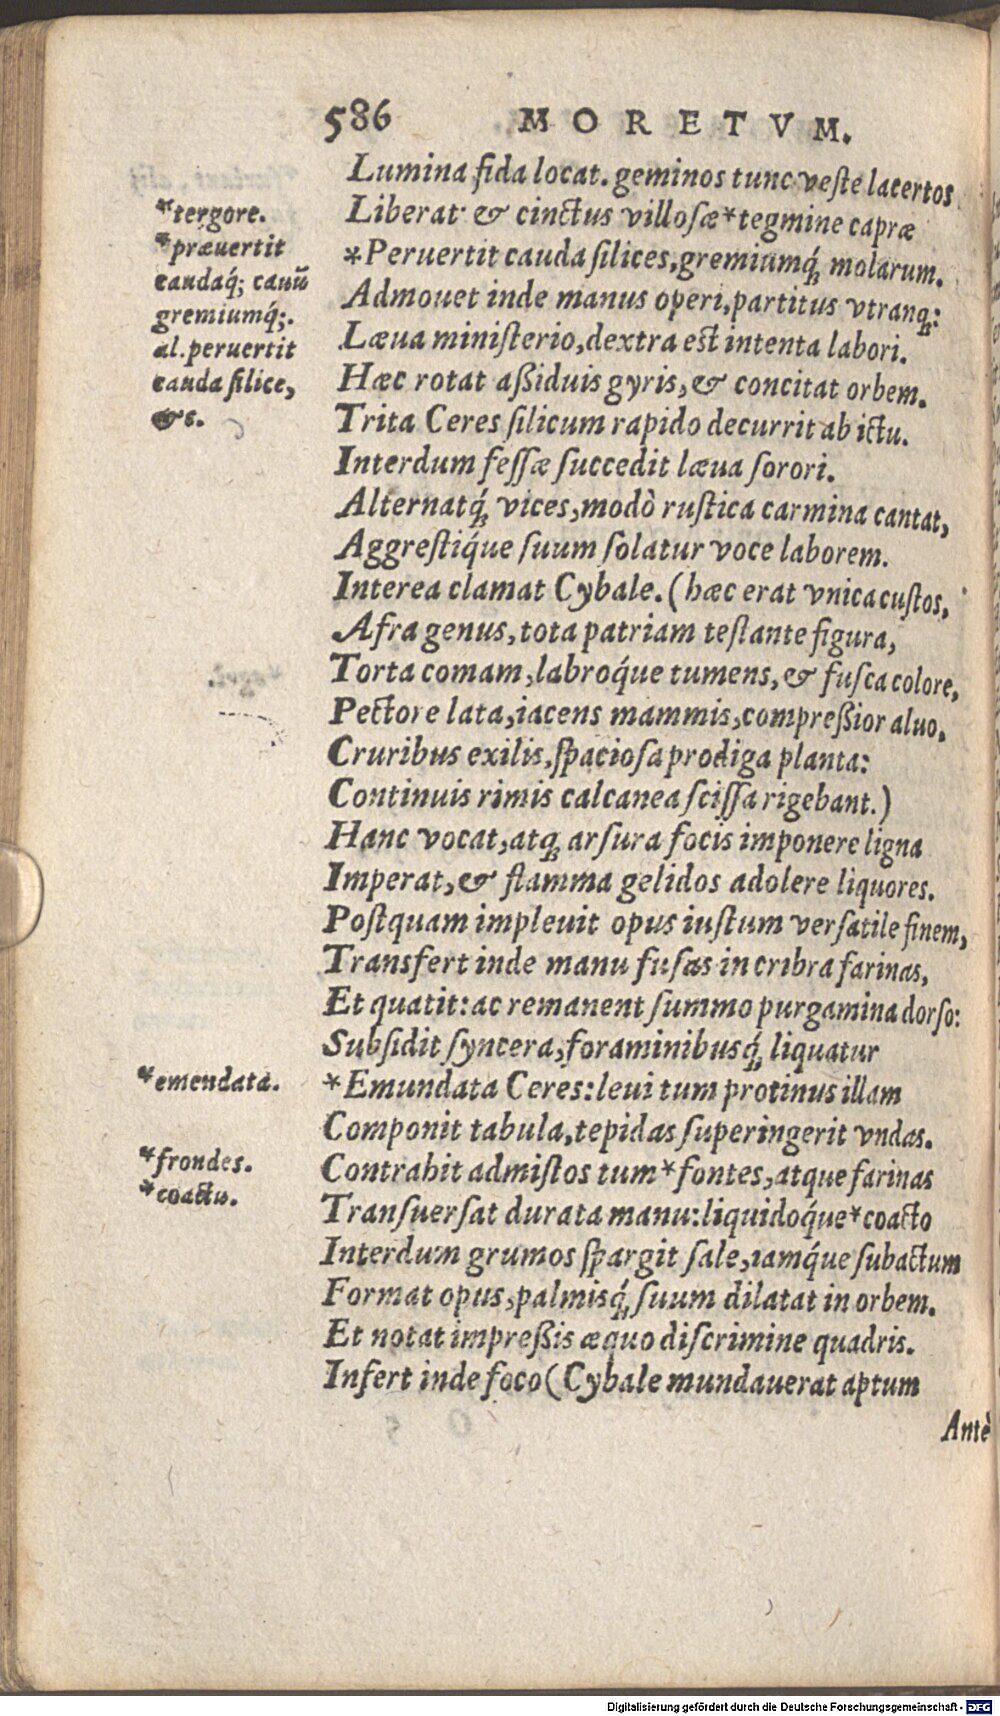 586 MORETVM.
Lumina fida locat. geminos tunc veste lacertos
Liberat· & cinctus villosæ*tegmine capræ
*Peruertit cauda silices, gremiumq́; molarum.
Admouet inde manus operi, partitus vtranq;:
Læua ministerio, dextra est intenta labori.
Hæc rotat aßiduis gyris, & concitat orbem.
Trita Ceres silicum rapido decurrit ab ictu.
Interdum fessæ succedit læua sorori.
Alternatq́; vices, modò rustica carmina cantat,
Aggrestiq́ue suum solatur voce laborem.
Interea clamat Cybale. (hæc erat vnica custos,
Afra genus, tota patriam testante figura,
Torta comam, labroq́ue tumens, & fusca colore,
Pectore lata, iacens mammis, compreßior aluo,
Cruribus exilis, spaciosa prodiga planta:
Continuis rimis calcanea scissa rigebant.)
Hanc vocat, atq; arsura focis imponere ligna
Imperat, & flamma gelidos adolere liquores.
Postquam impleuit opus iustum versatile finem,
Transfert inde manu fusas in cribra farinas,
Et quatit: ac remanent summo purgamina dorso:
Subsidit syncera, foraminibusq́; liquatur
*Emundata Ceres: leui tum protinus illam
Componit tabula, tepidas superingerit vndas.
Contrahit admistos tum*fontes, atque farinas
Transuersat durata manu: liquidoq́ue*coacto
Interdum grumos spargit sale, iamq́ue subactum
Format opus, palmisq́; suum dilatat in orbem.
Et notat impreßis æquo discrimine quadris.
Infert inde foco (Cybale mundauerat aptum
Antè
*tergore.
*præuertit
caudaq́; cauū
gremiumq́;.
al. peruertit
cauda silice,
&c.
*emendata.
*frondes.
*coactu.
Digitalisierung gefördert durch die Deutsche Forschungsgemeinschaft - DFG